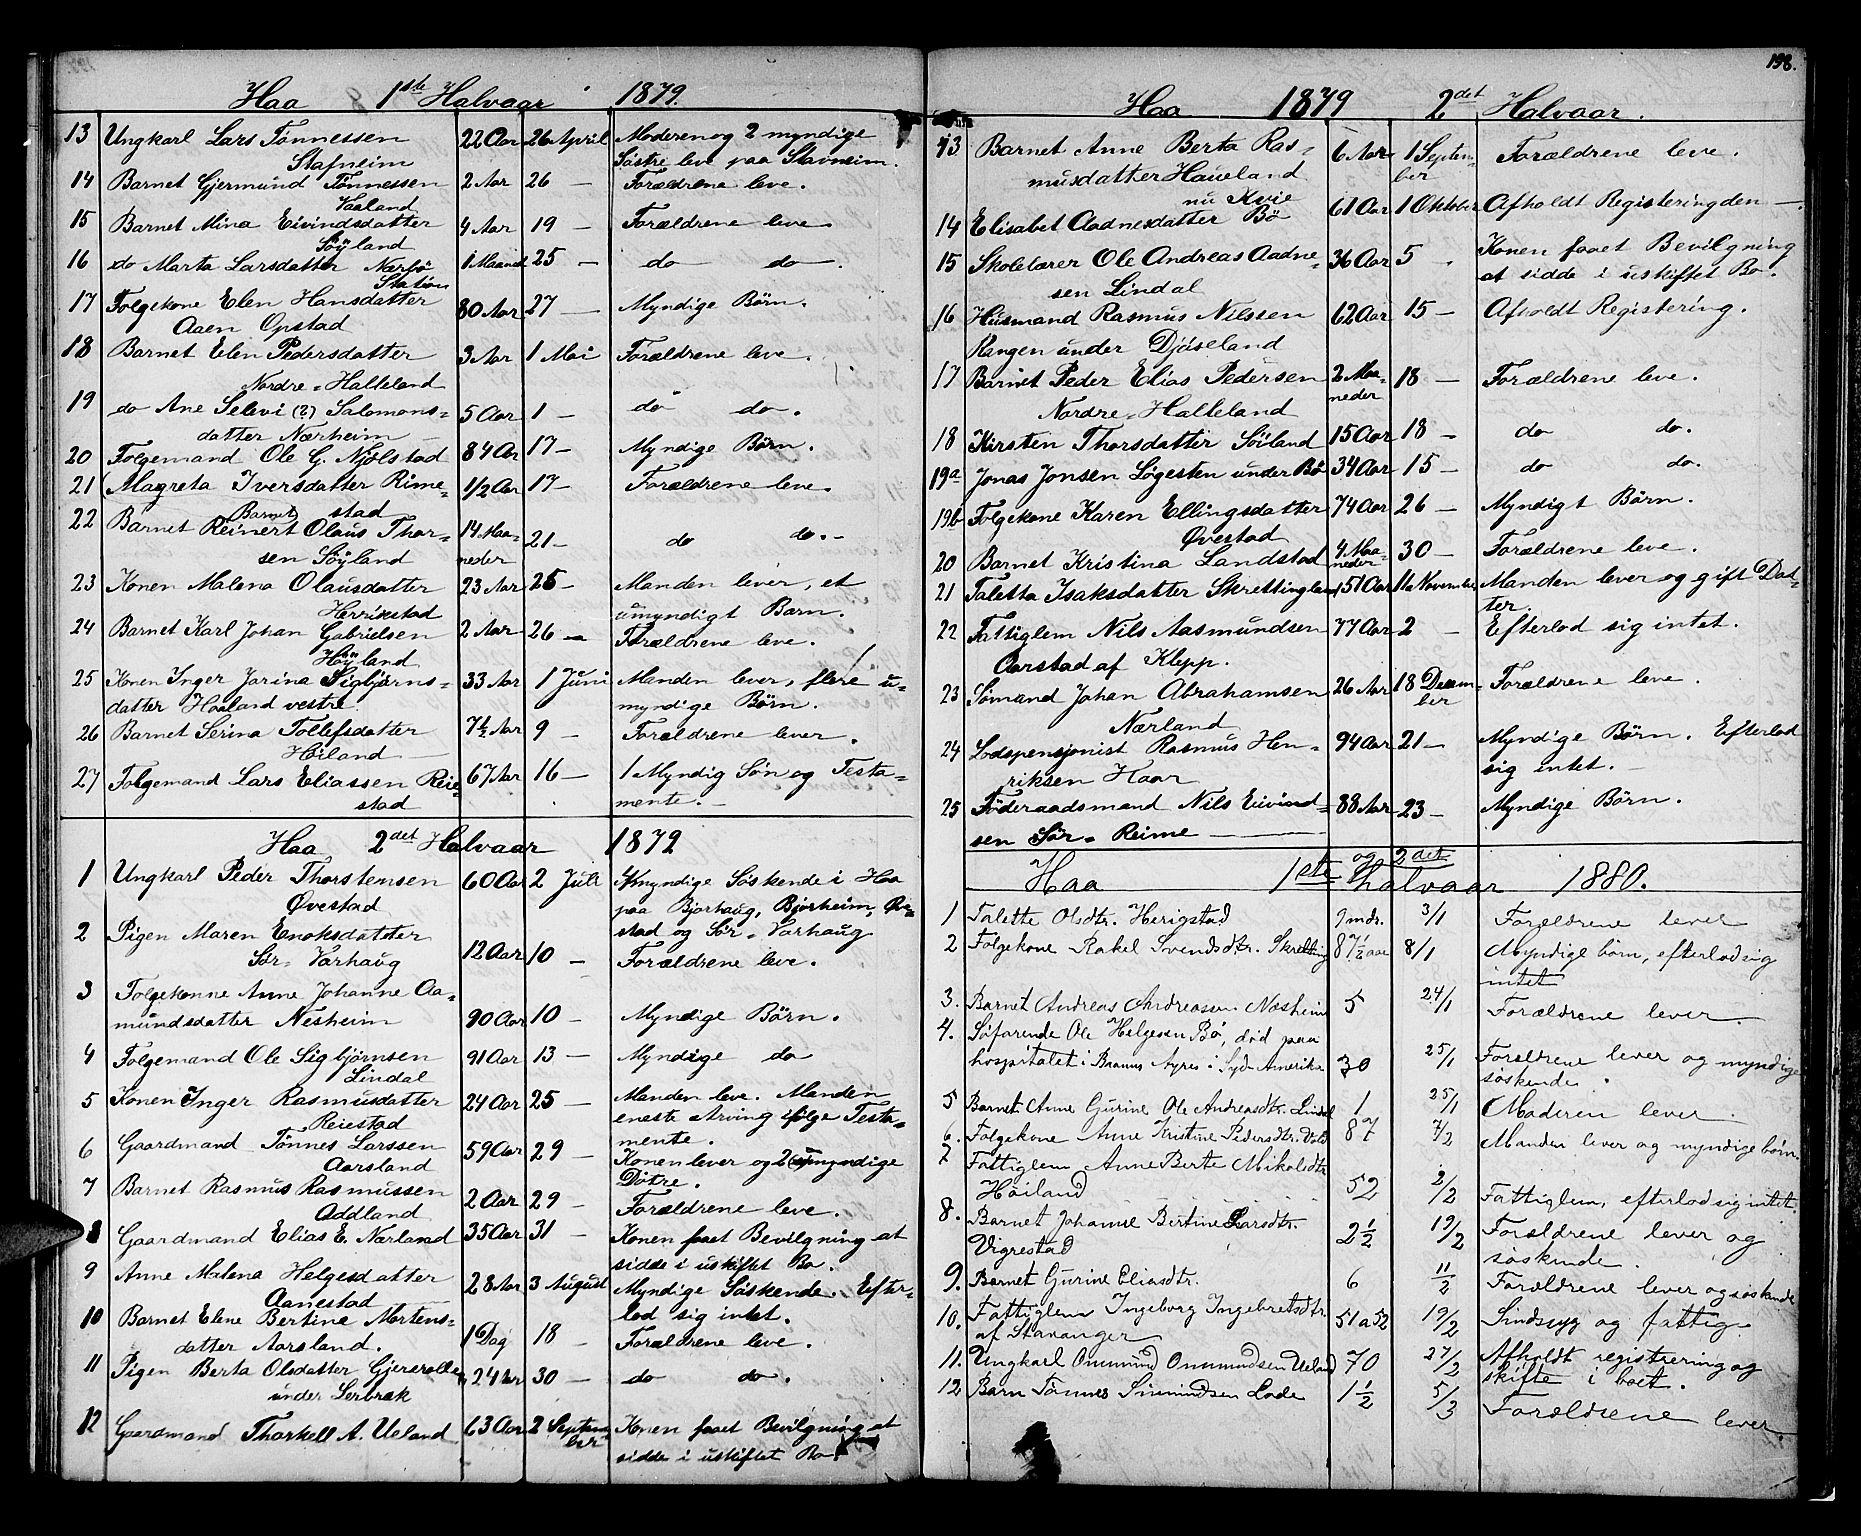 Haa 1ste Halvaar 1879.
13 Ungkarl Lars Tønnessen 22 Aar 26 April Moderen og 2 myndige
Stafneim Søstre leve paa Stavneim.
14 Barnet Gjermund Tønnessen 2 Aar 26 — Forældrene leve.
Vaaland
15 Barnet Mina Eivindsdatter 4 Aar 19 — Forældrene leve
Søÿland
16 do Marta Larsdatter Nærbø 1 Maaned 25 — do do.
Station
17 Folgekone Elen Hansdatter 80 Aar 27 — Myndige Börn.
Aaen Opstad
18 Barnet Elen Pedersdatter 3 Aar 1 Mai Forældrene leve.
Nordre = Halleland
19 do Ane Selevi (?) Salomons= 5 Aar 1 — do do.
datter Nærheim —
20 Folgemand Ole G. Njølstad 84 Aar 17 — Myndige Börn.
21 Magreta Iversdatter Rime= 1/2 Aar 17 — Forældrene leve.
Barnet stad
22 Barnet Reinert Olaus Thor= 14 Maa= 21 — do do. —
sen Søÿland neder
23 Konen Malena Olausdatter 23 Aar 25 — Manden lever, et
Herrikstad umyndigt Barn.
24 Barnet Karl Johan Gabrielsen 2 Aar 26 — Forældrene leve.
Höÿland
25 Konen Inger Jorina Sigbjørns= 33 Aar 1 Juni Manden lever, flere u=
datter Haaland vestre. myndige Börn.
26 Barnet Serina Tollefsdatter 7½ Aar 9 — Forældrene lever.
Høiland
27 Folgemand Lars Eliassen Reie= 67 Aar 16 — 1 Myndig Søn og Testa=
stad mente. —
Haa 2det Halvaar 1879
1 Ungkarl Peder Thorstensen 60 Aar 2 Juli Myndige Söskende i Haa
Øvestad paa Bjorhaug, Bjorheim, Øve=
2 Pigen Maren Enoksdatter 12 Aar 10 — stad og Sør = Varhaug
Sør = Varhaug Forældrene leve.
3 Folgekonne Anne Johanne Aa=
mundsdatter Nesheim 90 Aar 10 — Myndige Börn.
4 Folgemand Ole Sigbjørnsen 91 Aar 13 — Myndige do
Lindal
5 Konen Inger Rasmusdatter 24 Aar 25 — Manden leve. Manden
Reiestad eneste Arving ifølge Testa=
mente.
6 Gaardmand Tönnes Larssen 59 Aar 29 — Konen lever og 2 umyndige
Aarsland Dötre.
7 Barnet Rasmus Rasmussen 2 Aar 29 — Forældrene leve.
Oddland
8 Gaardmand Elias E. Nærland 35 Aar 31 — Konen faaet Bevilgning at
sidde i uskiftet Bo.
9 Anne Malena Helgesdatter 28 Aar 3 August Myndige Söskende. Efter=
Aanestad lod sig intet.
10 Barnet Elene Bertine Mortens= 1 Dag 18 — Forældrene leve.
datter Aarsland.
11 Pigen Berta Olsdatter 24 Aar 30 — do do.
under Serbrak
12 Gaardmand Thorkell A. Ueland 63 Aar 2 Septem= Konen faaet Bevilgning at
ber sidde i uskiftet Bo.
198.
Haa 1879 2det Halvaar.
13 Barnet Anne Berta Ras= 6 Aar 1 Septem= Forældrene leve.
musdatter Haueland ber
nu Kvie
14 Elisabet Aadnesdatter Bö 61 Aar 1 Oktober Afholdt Registering den —.
15 Skolelærer Ole Andreas Aadne= 36 Aar 5 Konen faaet Bevilgning
sen Lindal at sidde i uskiftet Bo.
16 Husmand Rasmus Nilssen 62 Aar 15 — Afholdt Registering.
Rangen under Djøseland
17 Barnet Peder Elias Pedersen 2 Maa= 18 — Forældrene leve.
Nordre = Halleland neder
18 Kirsten Thorsdatter Söiland 15 Aar 18 — do do.
19a Jonas Jonsen Løgesten under Bö 34 Aar 15 — do do.
19b Folgekone Karen Ellingsdatter 74 Aar 26 — Myndigt Börn.
Øvestad
20 Barnet Kristina Landstad 4 Maa= 30 — Forældrene leve.
neder
21 Taletta Isaksdatter Skrettingland 51 Aar 1te November Manden lever og gift Dat=
ter.
22 Fattiglem Nils Aasmundsen 77 Aar 2 — Efterlod sig intet.
Aarstad af Klepp.
23 Sömand Johan Abrahamsen 26 Aar 18 Decem= Forældrene leve.
Nærland ber
24 Lodspensjonist Rasmus Hen= 94 Aar 21 — Myndige Börn. Efterlod
riksen Haar sig intet. —
25 Föderaadsmand Nils Eivind= 88 Aar 23 — Myndige Börn.
sen Sør = Reime —
Haa 1ste og 2det Halvaar 1880.
1 Talette Olsdtr. Herigstad 9 mdr. 3/1 Forældrene lever
2 Folgekone Rakel Svendsdtr. Skretting 87½ aar 8/1 Myndige börn, efterlod sig
intet
3. Barnet Andreas Andreasen Næsheim 5 24/1 Forældrene lever.
4. Söfarende Ole Helgesen Bö, död paa
hospitalet i Buenus Ayres i Syd-Amerika 30 25/1 Forældrene lever og myndige
söskende.
5 Barnet Anne Gurine Ole Andreasdtr. Lindal 1 25/1 Moderen lever.
6. Folgekone Anne Kristine Pedersdtr. 87 7/2 Manden lever og myndige børn.
7 Fattiglem Anne Berte Mikalsdtr
Höiland 52 2/2 Fattiglem, efterlod sig intet.
8. Barnet Johanne Bertine Larsdtr. 2½ 19/2 Forældrene lever og
Vigrestad söskende.
9. Barnet Gurine Eliasdtr. 6 11/2 Forældrene lever og söskende
10. Fattiglem Ingeborg Ingebretsdtr 51 a 52 19/2 Sindssyg og fattig.
af Stavanger
11. Ungkarl Ommund Ommundsen Ueland 70 27/2 Afholdt registrering og
skifte i boet.
12 Barn Tönnes Simmundsen Lode 1½ 5/3 Forældrene lever.